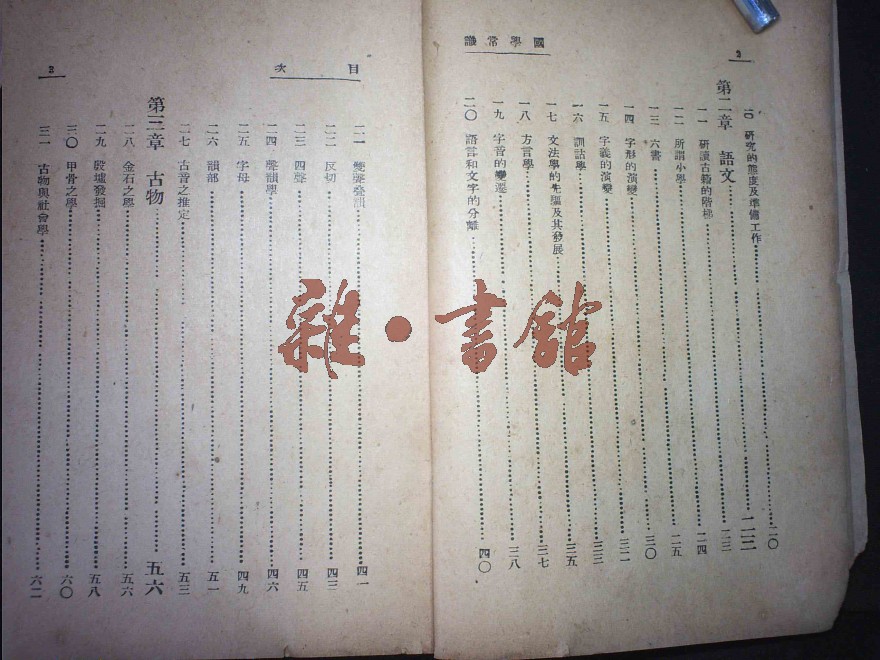 2
國學常識
一〇 研究的態度及準備工作……二〇
第二章 語文……二三
一一 研讀古籍的階梯……二三
一二 所謂小學……二四
一三 六書……二五
一四 字形的演變……三〇
一五 字義的演變……三二
一六 訓詁學……三三
一七 文法學的先驅及其發展……三五
一八 方言學……三七
一九 字音的變遷……三八
二〇 語言和文字的分離……四〇
目次
3
二一 雙聲疊韻……四一
二二 反切……四三
二三 四聲……四五
二四 聲韻學……四六
二五 字母……四九
二六 韻部……五一
二七 古音之推定……五三
第三章 古物……五六
二八 金石之學……五六
二九 殷墟發掘……五八
三〇 甲骨之學……六〇
三一 古物與社會學……六二
雜·書館